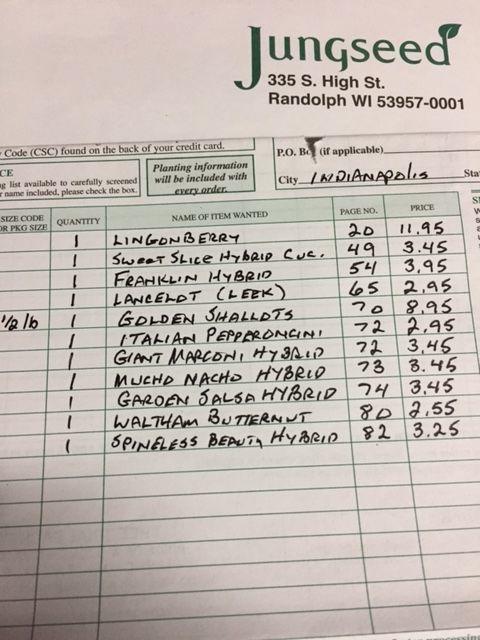 Jungseed
335 S. High St.
Randolph WI 53957-0001
Code (CSC) found on the back of your credit card.
P.O. Box (if applicable)
CE
g list available to carefully screened
r name included, please check the box.
Planting information
will be included with
every order.
City INDIANAPOLIS Sta
SIZE CODE
OR PKG SIZE QUANTITY NAME OF ITEM WANTED PAGE NO. PRICE
1 LINGONBERRY 20 11.95
1 SWEET SLICE HYBRID CUC. 49 3.45
1 FRANKLIN HYBRID 54 3.95
1 LANCELOT (LEEK) 65 2.95
1/2 lb 1 GOLDEN SHALLOTS 70 8.95
1 ITALIAN PEPPERONCINI 72 2.95
1 GIANT MARCONI HYBRID 72 3.45
1 MUCHO NACHO HYBRID 73 3.45
1 GARDEN SALSA HYBRID 74 3.45
1 WALTHAM BUTTERNUT 80 2.55
1 SPINELESS BEAUTY HYBRID 82 3.25